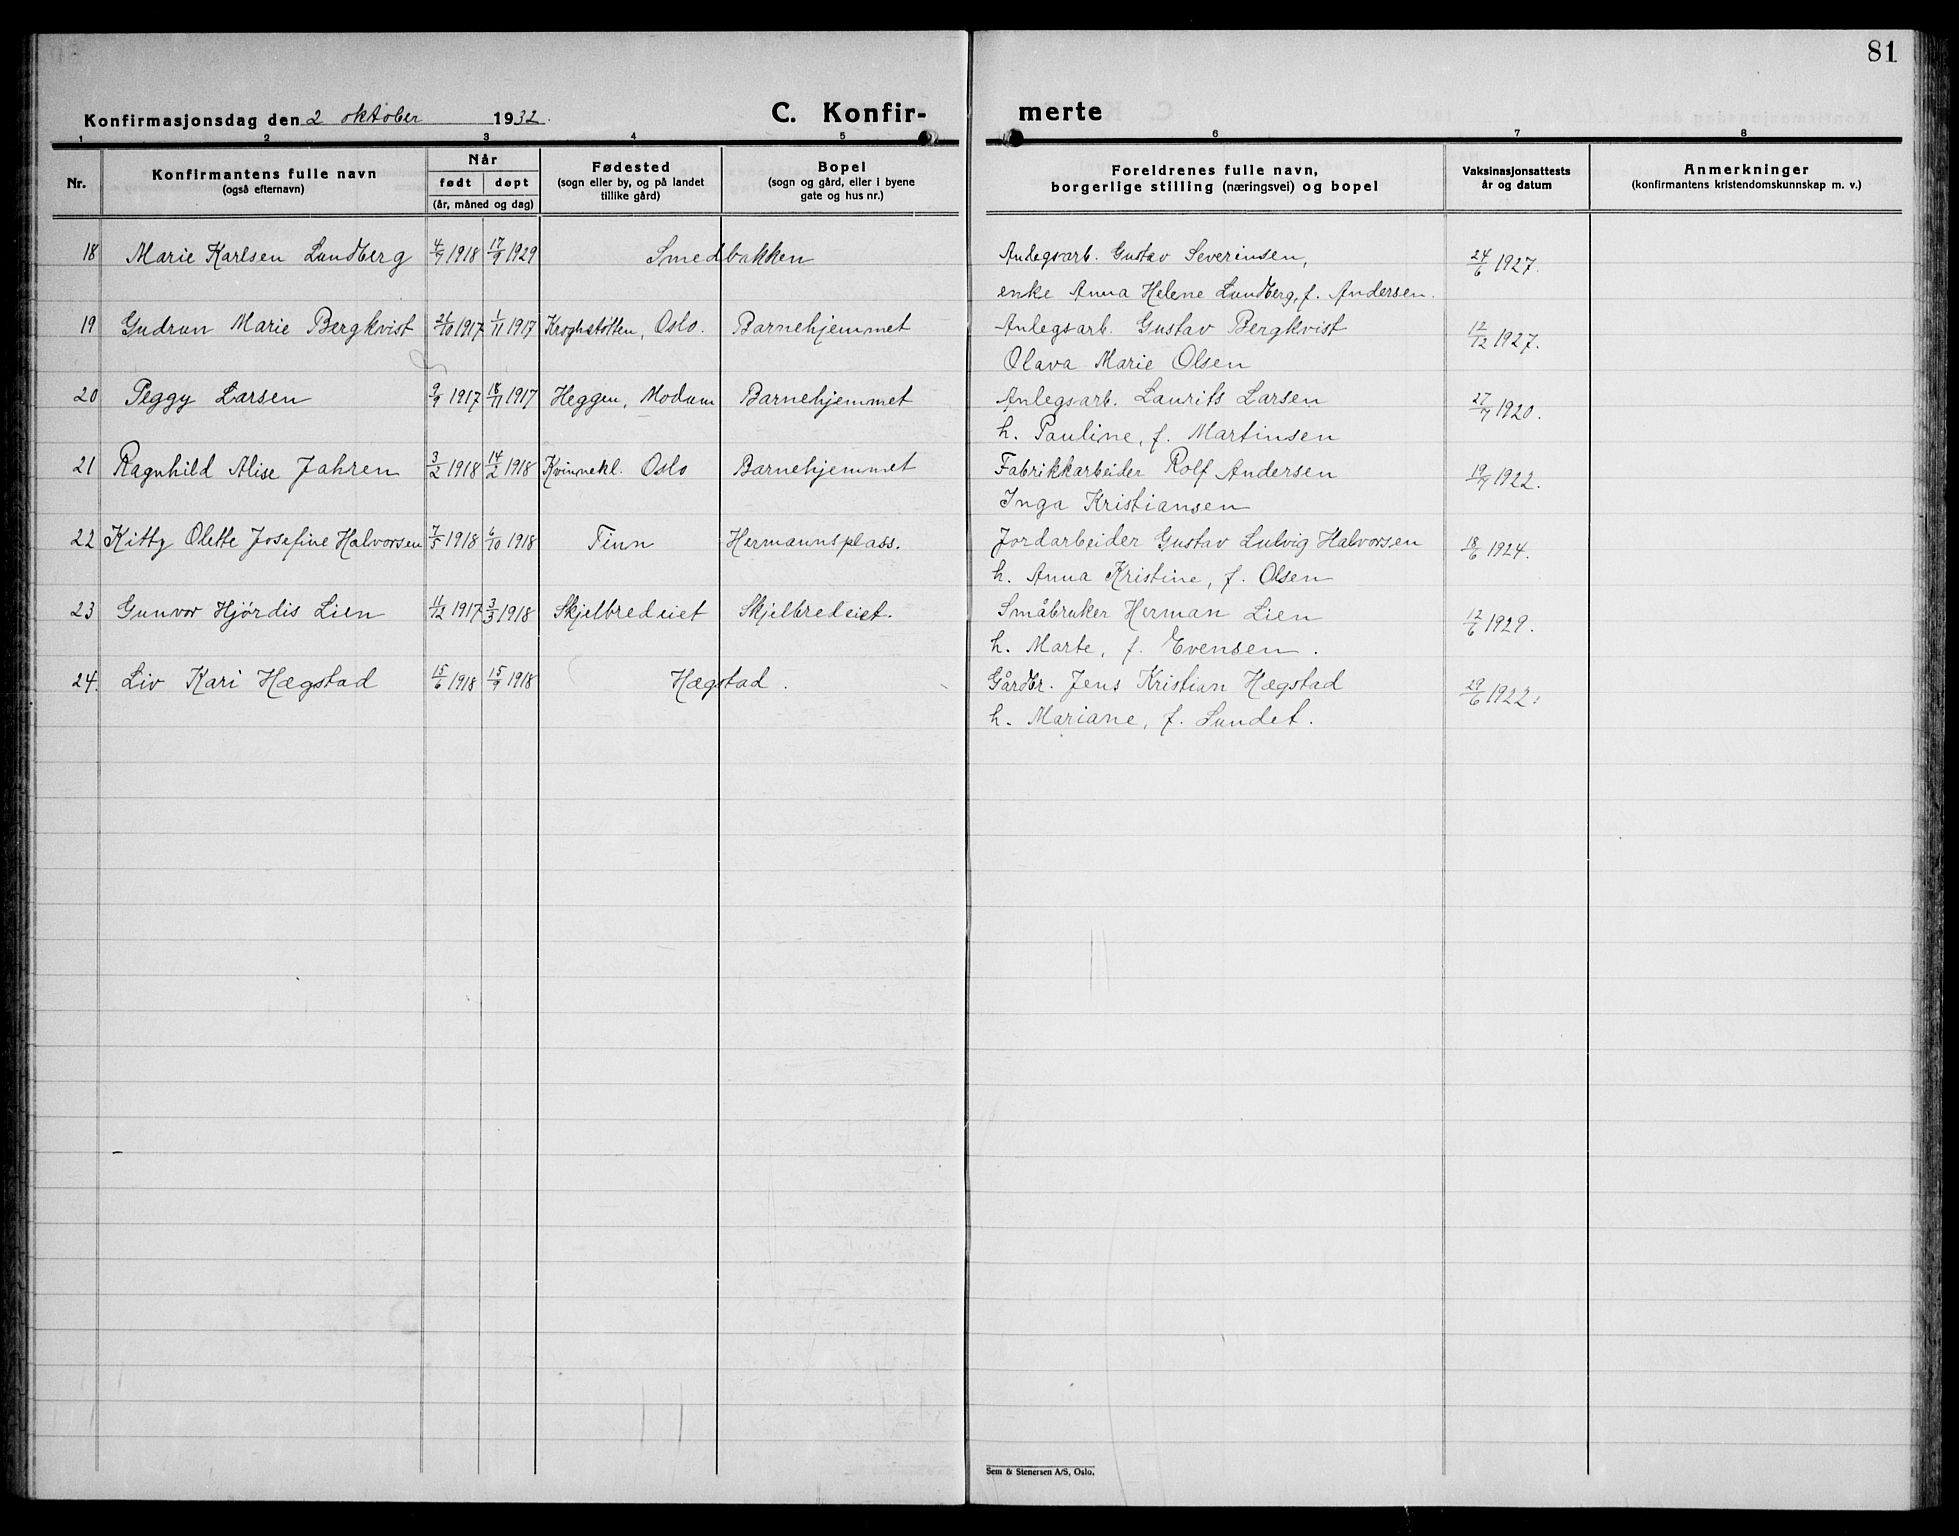 81
Konfirmasjonsdag den 2 oktober 1932.
C. Konfir-
merte
1 2 3 4 5 6 7 8
Nr.
Konfirmantens fulle navn
(også efternavn)
Når
født døpt
(år, måned og dag)
Fødested
(sogn eller by, og på landet
tillike gård)
Bopel
(sogn og gård, eller i byene
gate og hus nr.)
Foreldrenes fulle navn,
borgerlige stilling (næringsvei) og bopel
Vaksinasjonsattests
år og datum
Anmerkninger
(konfirmantens kristendomskunnskap m. v.)
18 Marie Karlsen Lundberg 4/7 1918 17/9 1929 Smedbakken Anlegsarb. Gustav Severinsen, 24/6 1927.
enke Anna Helene Lundberg, f. Andersen.
19 Gudrun Marie Bergkvist 21/10 1917 1/11 1917 Kroghstøtten, Oslo. Barnehjemmet Anlegsarb. Gustav Bergkvist 12/12 1927.
Olava Marie Olsen
20 Peggy Larsen 9/9 1917 18/11 1917 Heggen, Modum Barnehjemmet Anlegsarb. Laurits Larsen 27/7 1920.
h. Pauline, f. Martinsen
21 Ragnhild Alise Jahren 3/2 1918 14/2 1918 Kvinnekl. Oslo Barnehjemmet Fabrikkarbeider Rolf Andersen 19/7 1922.
Inga Kristiansen
22 Kitty Olette Josefine Halvorsen 7/5 1918 6/10 1918 Tinn Hermannsplass. Jordarbeider Gustav Lulvig Halvorsen 18/6 1924.
h. Anna Kristine, f. Olsen
23 Gunvor Hjørdis Lien 11/12 1917 3/3 1918 Skjelbredeiet Skjelbredeiet. Småbruker Herman Lien 12/6 1929.
h. Marte, f. Evensen.
24. Liv Kari Hægstad 15/6 1918 15/9 1918 Hægstad. Gårdbr. Jens Kristian Hægstad 29/6 1922.
h. Mariane, f. Lundet.
Sem & Stenersen A/S, Oslo.